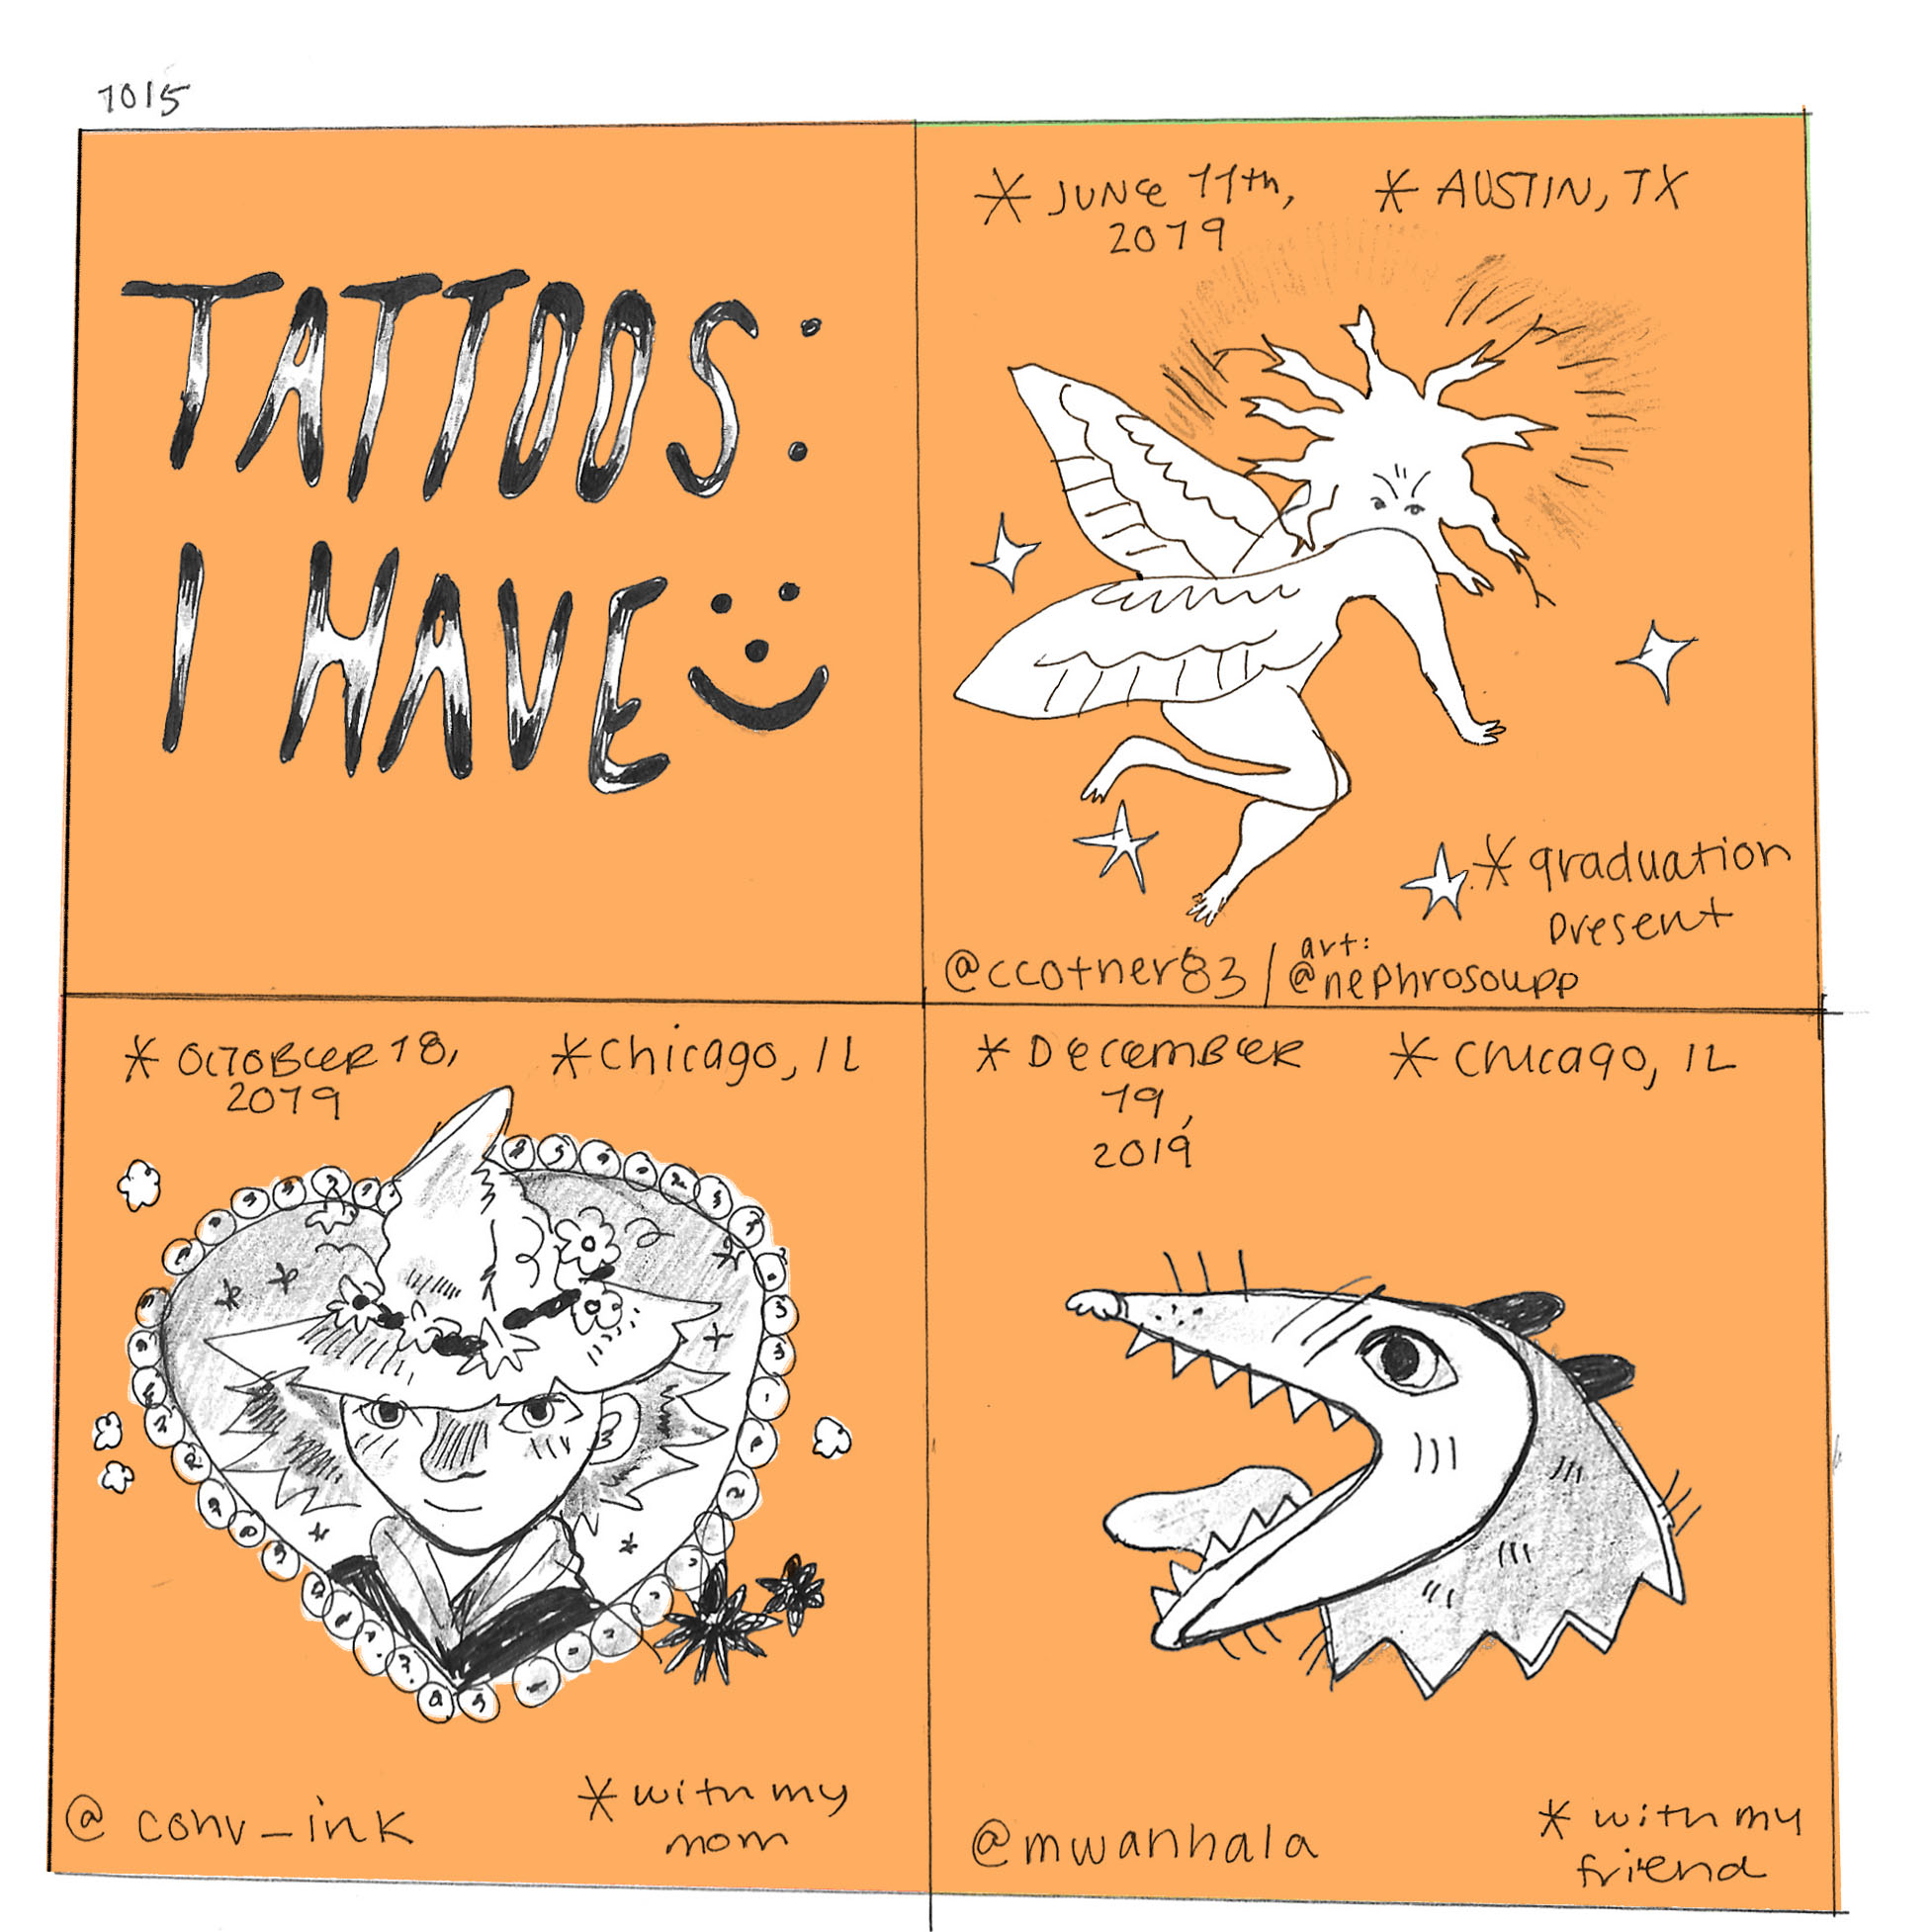 1015
TATTOOS:
I HAVE
* JUNE 11th,
2019
* AUSTIN, TX
* graduation
present
@ccotner83 / art:
@nephrosoupp
* OCTOBER 18,
2019
* Chicago, IL
@ conv_ink
* with my
mom
* DECEMBER
19,
2019
* Chicago, IL
@mwanhala
* with my
friend